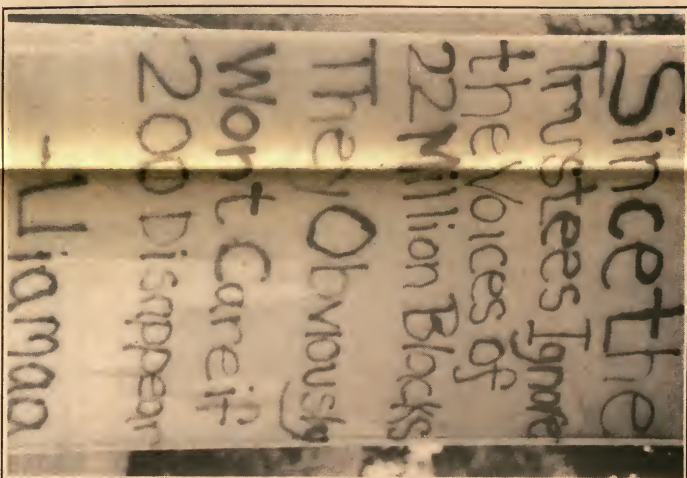 Since the
Trustees Ignore
the Voices of
22 Million Blacks
They Obviously
Wont Care if
200 Disappear
-Ujamaa